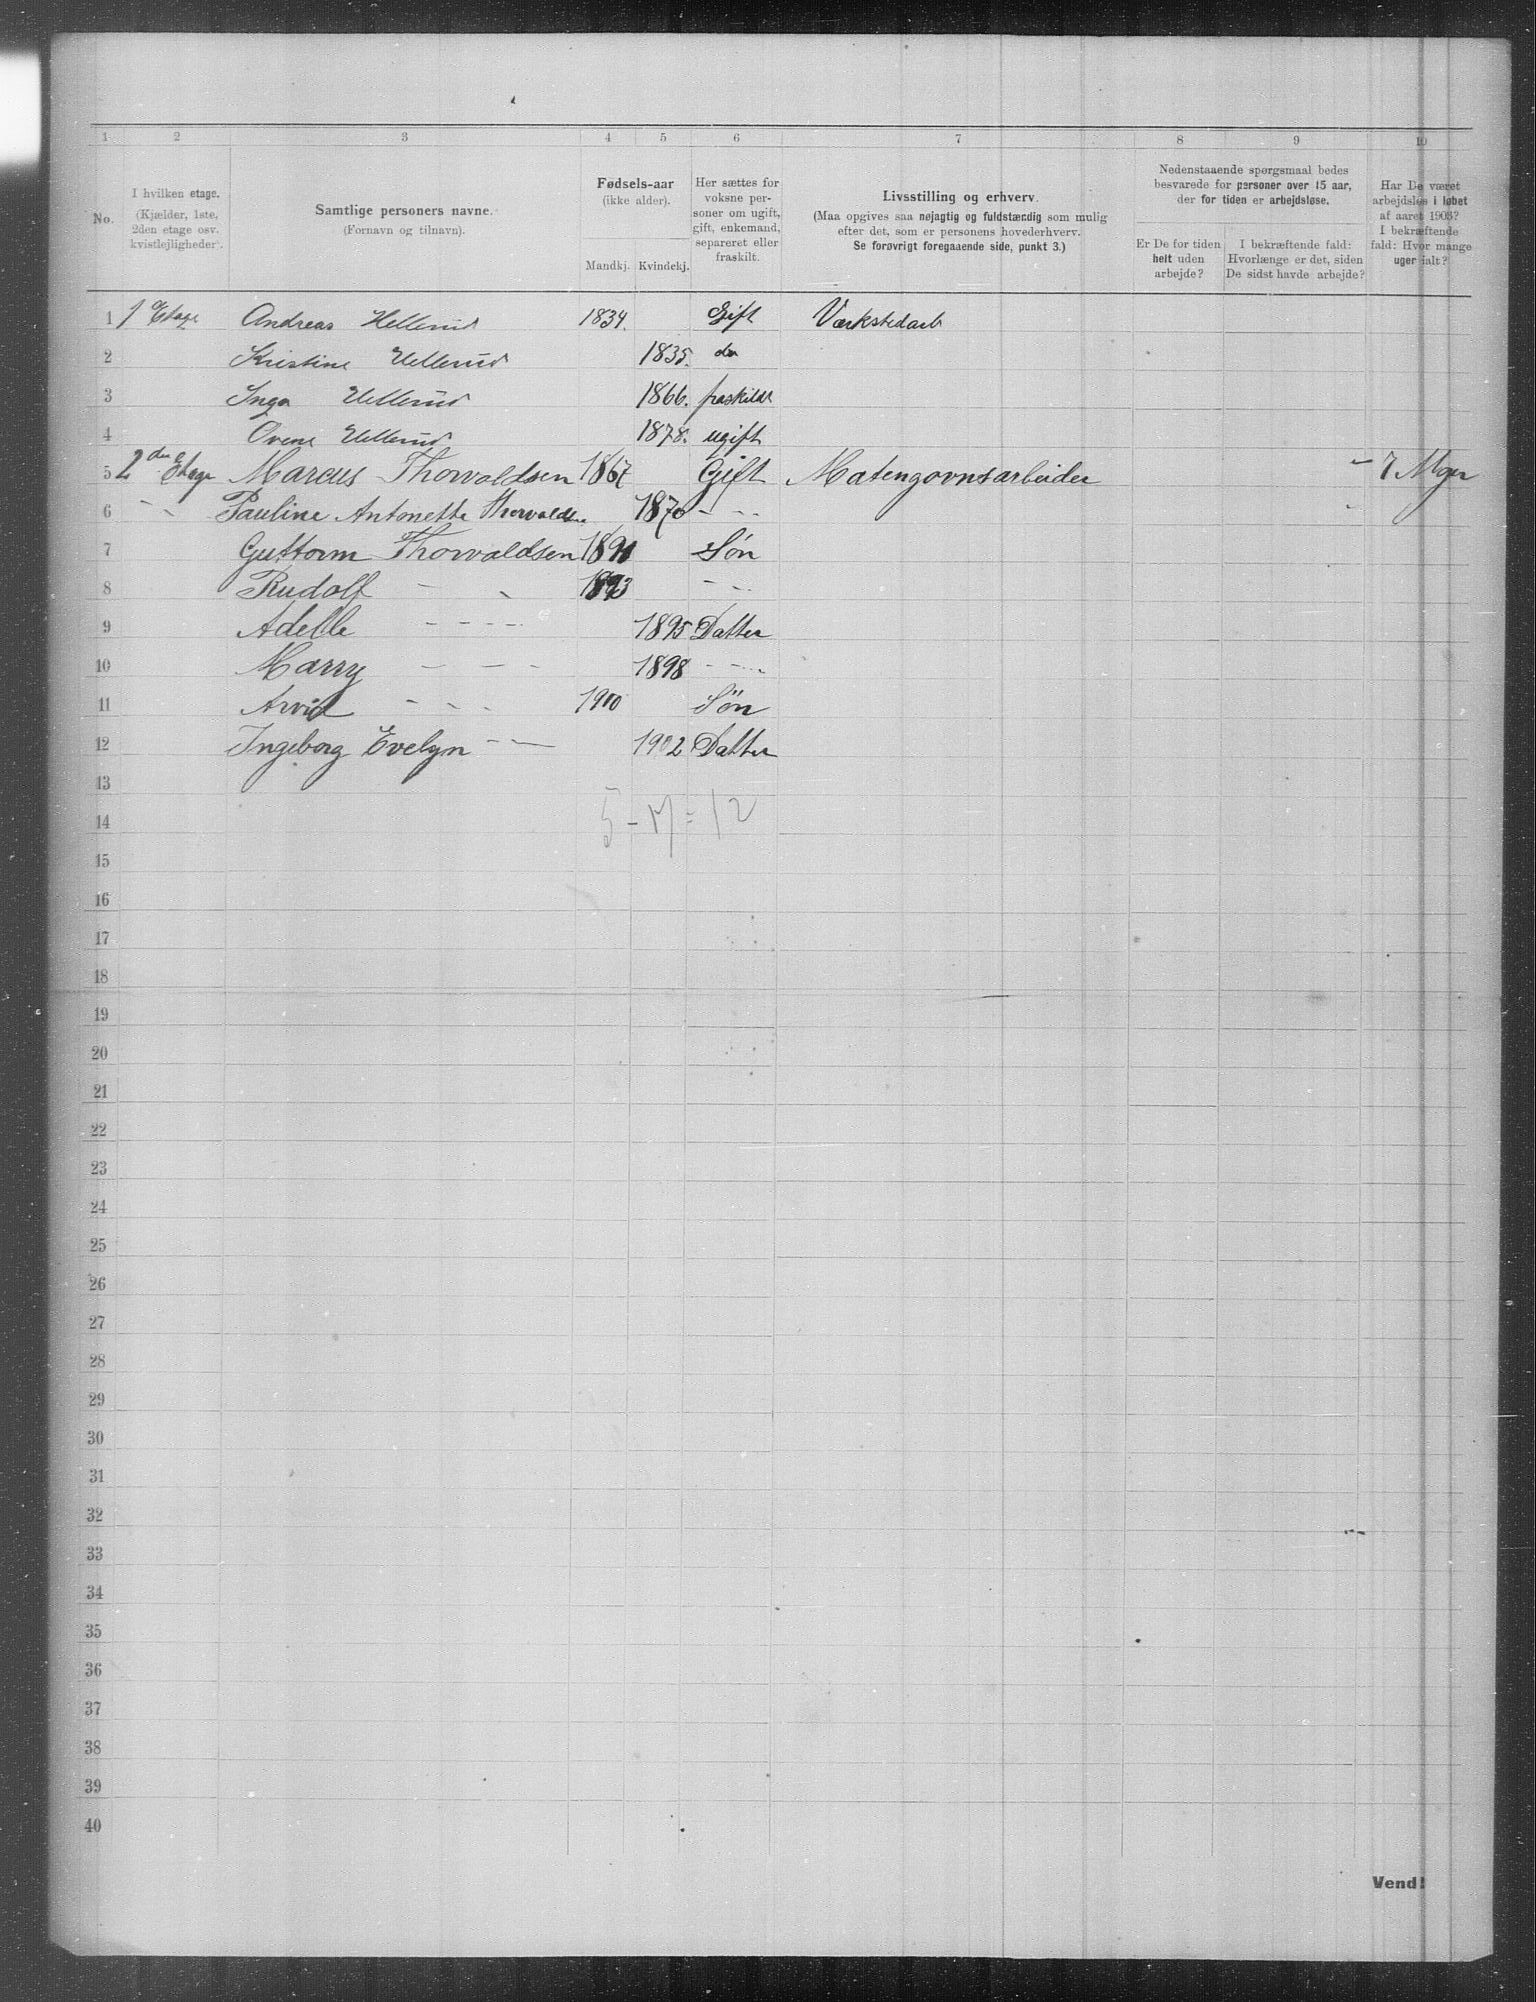 1 2 3 4 5 6 7 8 9 10
No.
I hvilken etage.
(Kjælder, 1ste,
2den etage osv.
kvistlejligheder).
Samtlige personers navne.
(Fornavn og tilnavn).
Fødsels-aar
(ikke alder).
Mandkj. Kvindekj.
Her sættes for
voksne per-
soner om ugift,
gift, enkemand,
separeret eller
fraskilt.
Livsstilling og erhverv.
(Maa opgives saa nøjagtig og fuldstændig som mulig
efter det, som er personens hovederhverv.
Se forøvrigt foregaaende side, punkt 3.)
Nedenstaaende spørgsmaal bedes
besvarede for personer over 15 aar,
der for tiden er arbejdsløse.
Er De for tiden
helt uden
arbejde?
I bekræftende fald:
Hvorlænge er det, siden
De sidst havde arbejde?
Har De været
arbejdsløs i løbet
af aaret 1903?
I bekræftende
fald: Hvor mange
uger ialt?
1 1 Etage Andreas Hellerud 1834. Gift Værkstedarb
2 Kristine Hellerud 1835. do
3 Inga Hellerud 1866. fraskildt
4 Hellerud 1878. ugift
5 2den Etage Marcus Thorvaldsen 1867 Gift 7
6 - - Pauline Antonette Thorvaldsen 1870 - - -
7 Guttorm Thorvaldsen 1891 Søn
8 Rudolf - - 1893 - - -
9 Adelle - - - - 1895 Datter
10 Marry - - - 1898 - - -
11 Arvid - - - 1900 Søn
12 Ingeborg Evelyn - - 1902 Datter
13
14 5 - 17 = 12
15
16
17
18
19
20
21
22
23
24
25
26
27
28
29
30
31
32
33
34
35
36
37
38
39
40
Vend!